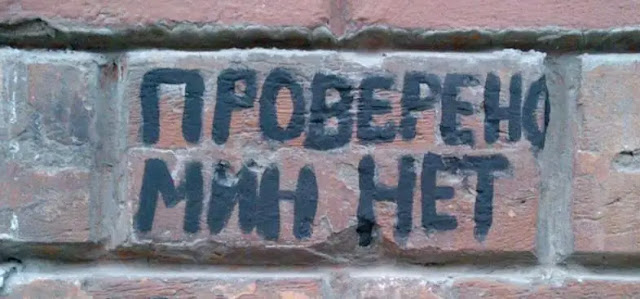 ПРОВЕРЕНО
МИН НЕТ